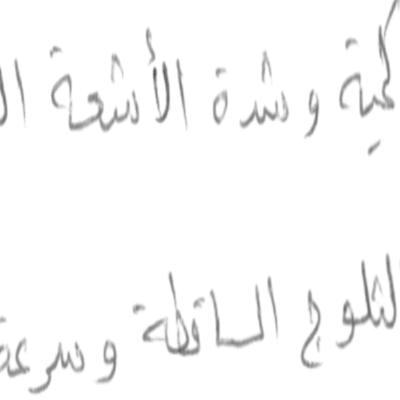 كمية وشدة الأشعة ال
الثلوج الساقطة وسرعة